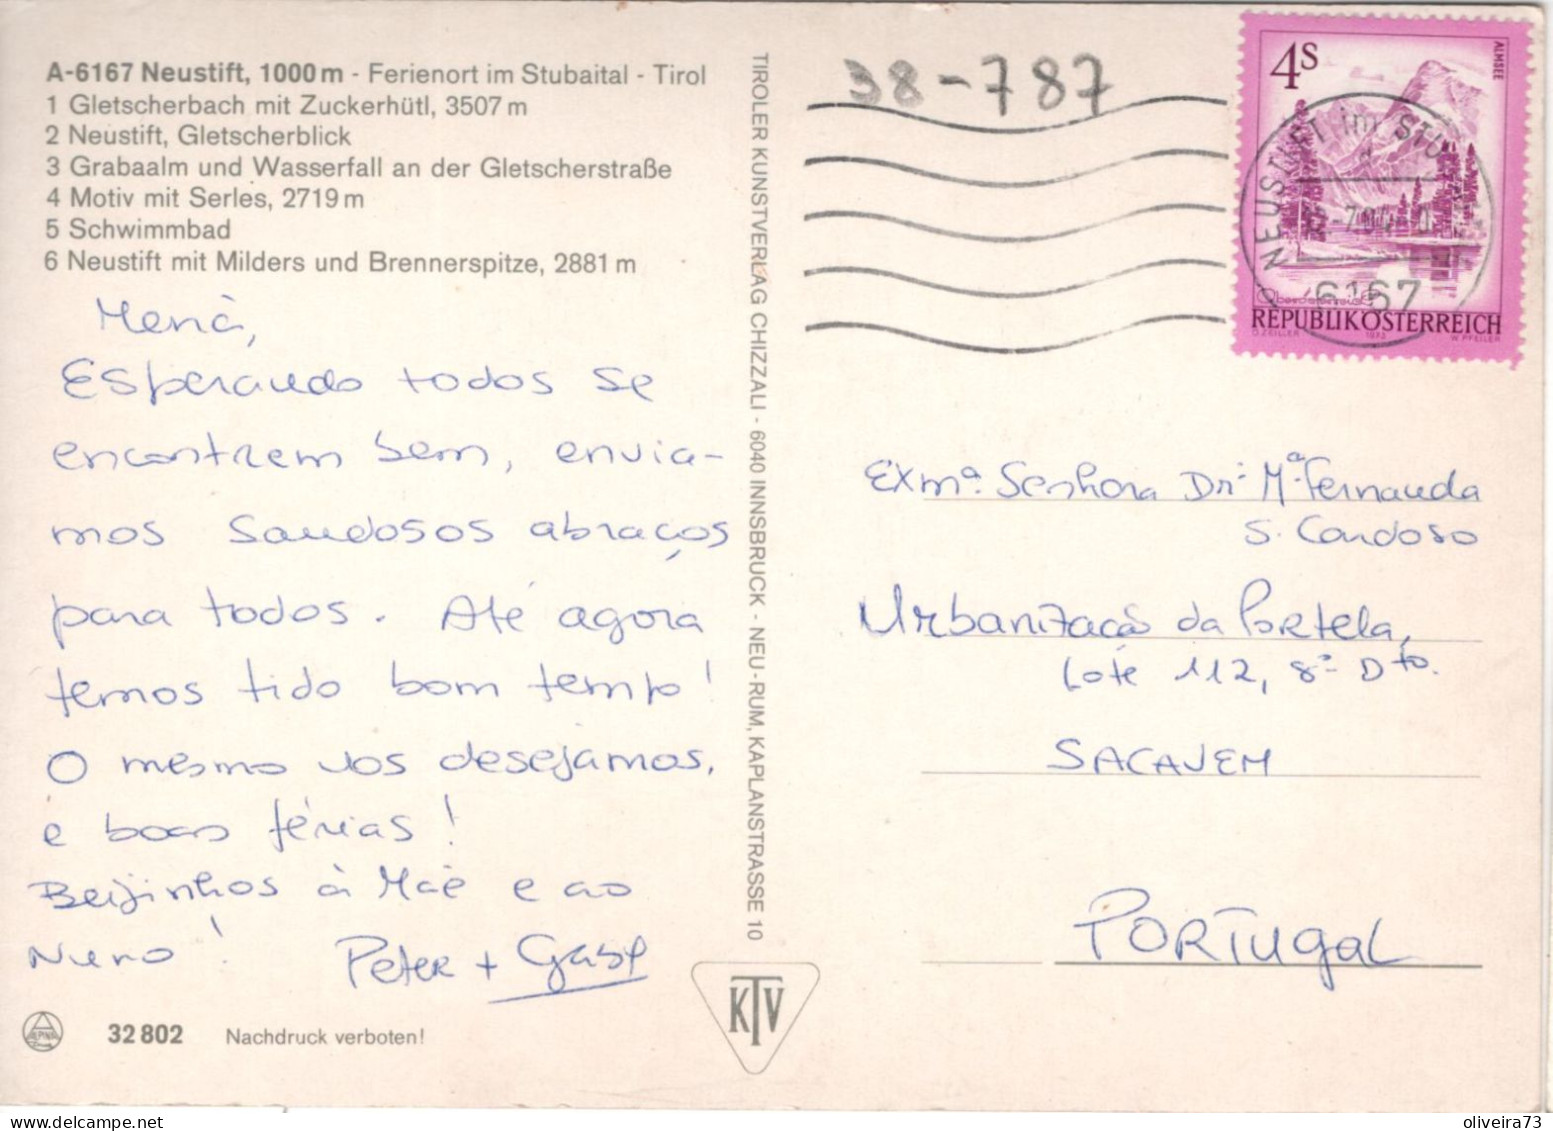 A-6167 Neustift, 1000 m - Ferienort im Stubaital - Tirol
1 Gletscherbach mit Zuckerhütl, 3507 m
2 Neustift, Gletscherblick
3 Grabaalm und Wasserfall an der Gletscherstraße
4 Motiv mit Serles, 2719 m
5 Schwimmbad
6 Neustift mit Milders und Brennerspitze, 2881 m
Esperando todos se
encontrem bem, envia-
mos saudosos abraços
para todos. Até agora
temos tido bom tempo!
O mesmo vos desejamos,
e boas férias!
Beijinhos à Mãe e ao
Nuno!
Peter + Gaby
32 802
Nachdruck verboten!
TIROLER KUNSTVERLAG CHIZZALI - 6040 INNSBRUCK - NEU-RUM, KAPLANSTRASSE 10
KTV
38-787
4S
ALMSEE
REPUBLIK ÖSTERREICH
NEUSTIFT im STU
6167
Exmª. Senhora Drª Mª. Fernanda
S. Cardoso
Urbanização da Portela,
Lote 112, 8º Dto.
SACAVEM
PORTUGAL
oliveira73